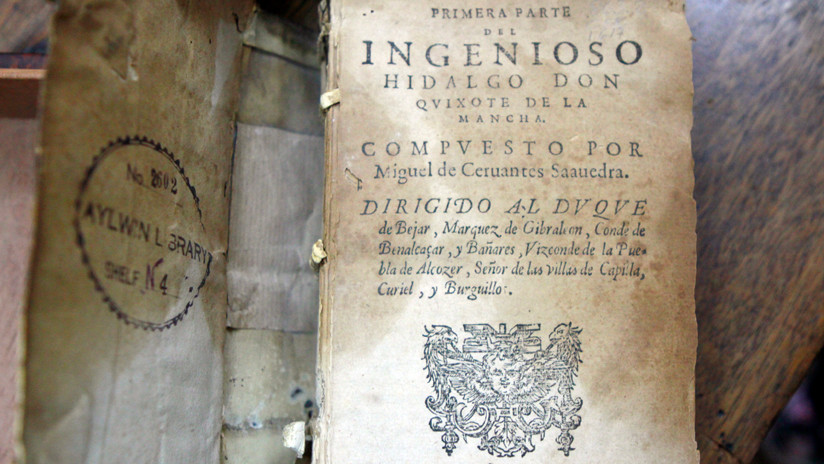 No. 2602
AYLWIN LIBRARY
SHELF N4
PRIMERA PARTE
DEL
INGENIOSO
HIDALGO DON
QVIXOTE DE LA
MANCHA.
COMPVESTO POR
Miguel de Ceruantes Saauedra.
DIRIGIDO AL DVQVE
de Bejar, Marquez de Gibraleon, Conde de
Benalcaçar, y Bañares, Vizconde de la Pue-
bla de Alcozer, Señor de las villas de Capilla,
Curiel, y Burguillos.